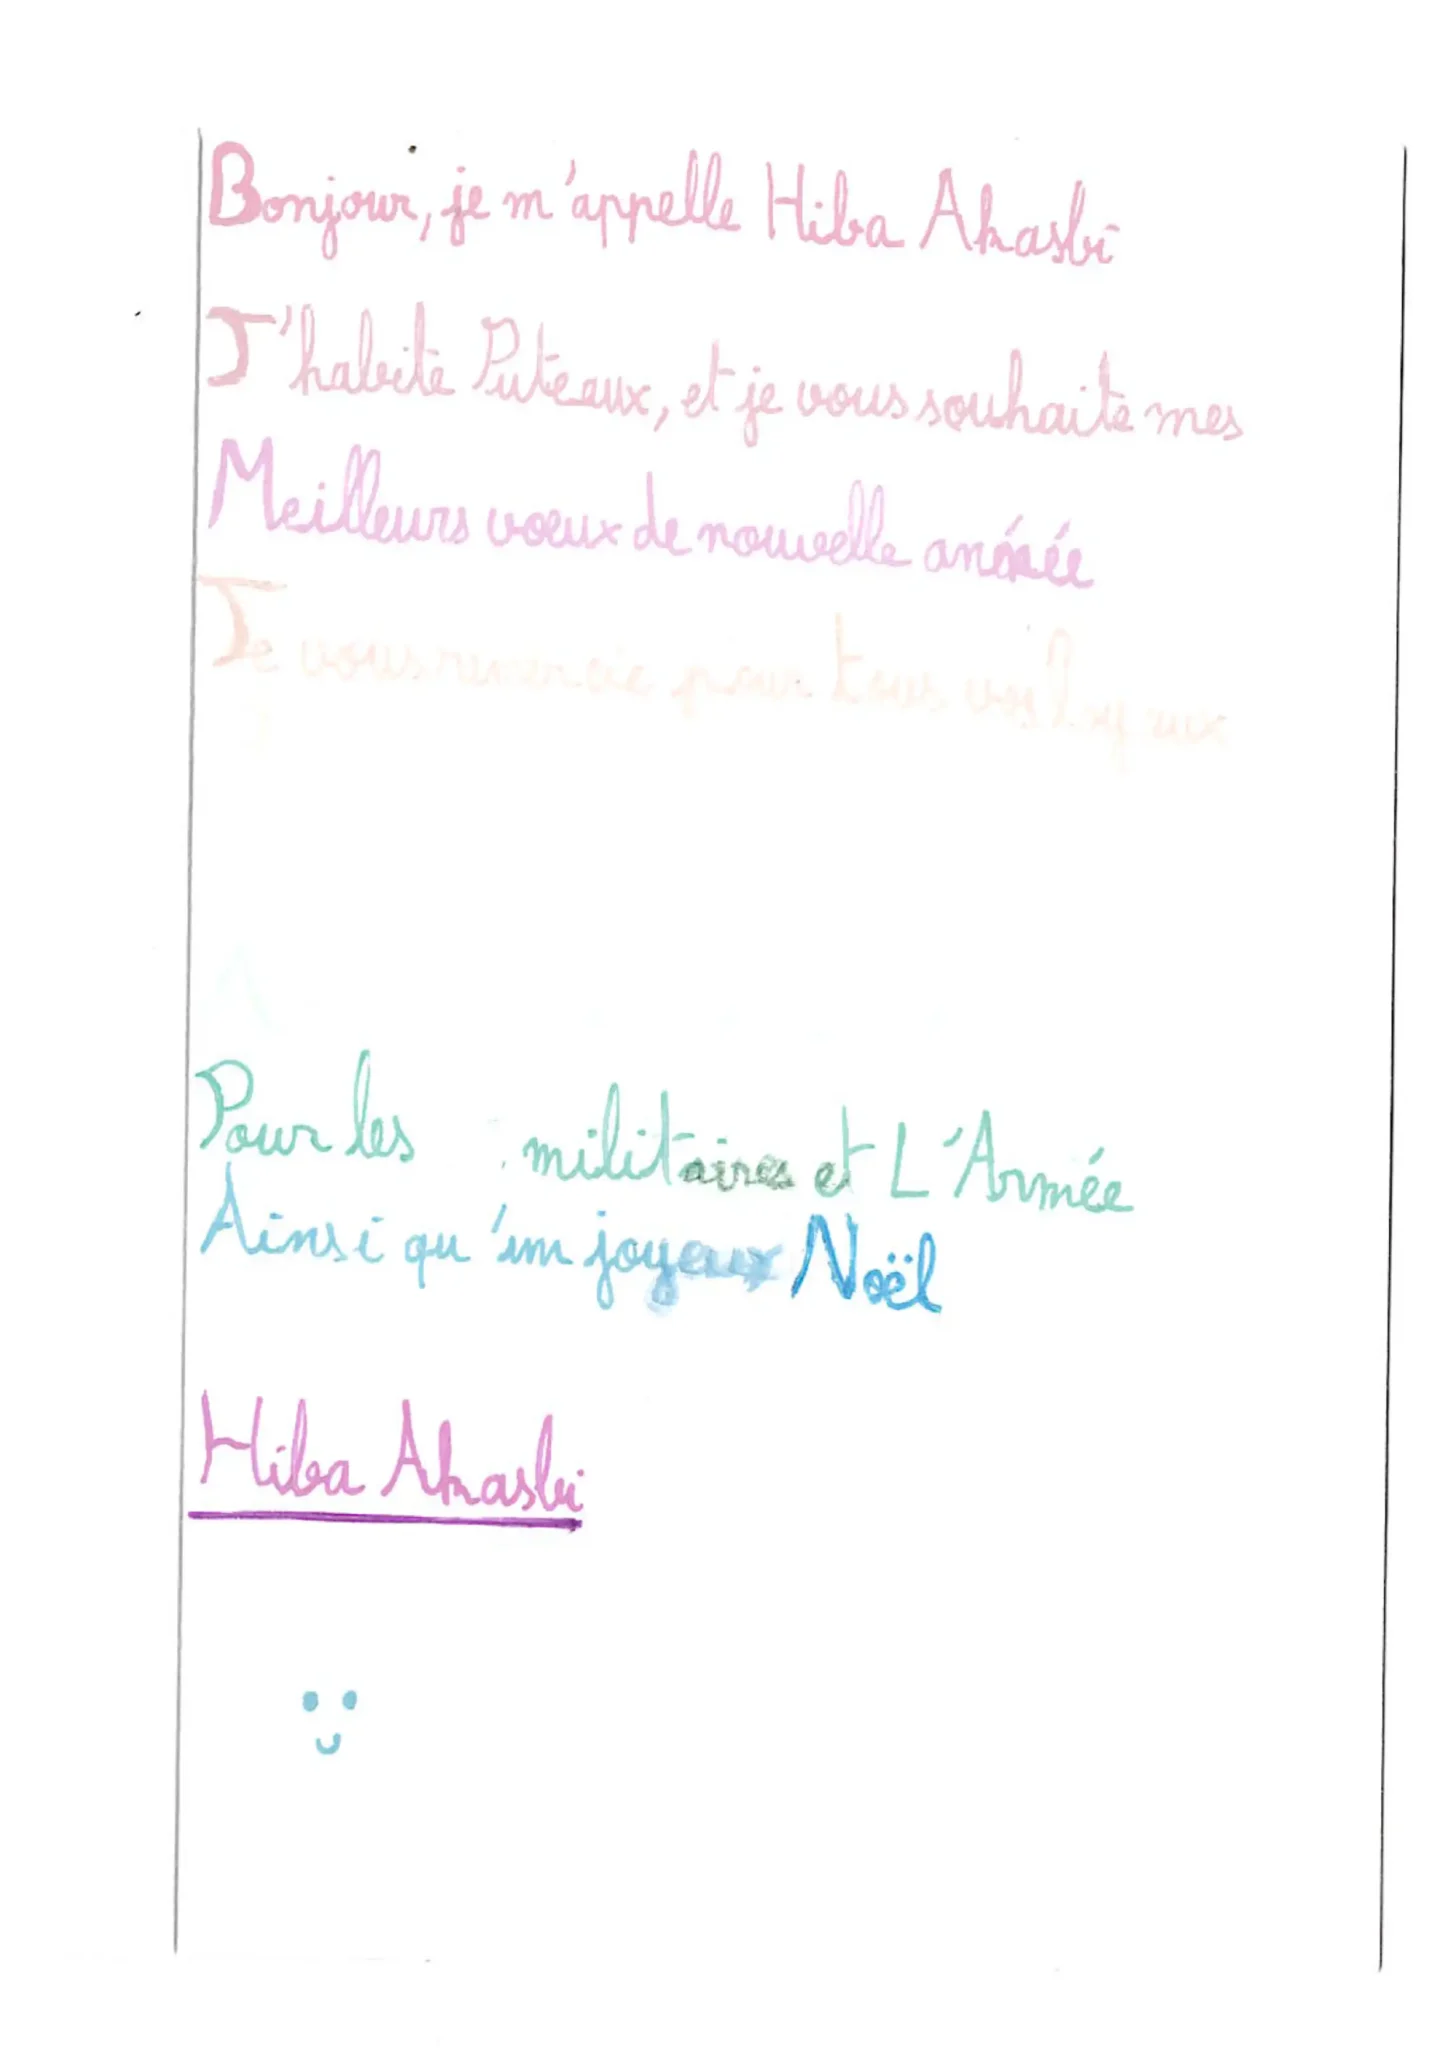 Bonjour, je m'appelle Hiba Akasbi
J'habite Puteaux, et je vous souhaite mes
Meilleurs vœux de nouvelle année
Je vous remercie pour tous vos
Pour les militaires et L'Armée
Ainsi qu'un joyeux Noël
Hiba Akasbi